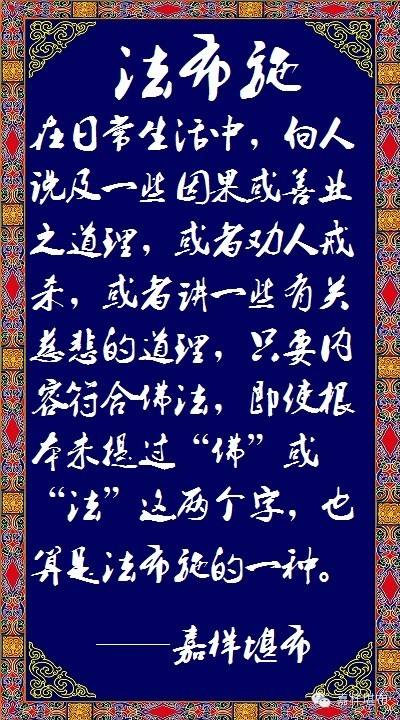 法布施
在日常生活中，向人
说及一些因果或善业
之道理，或者劝人戒
杀，或者讲一些有关
慈悲的道理，只要内
容符合佛法，即使根
本未提过“佛”或
“法”这两个字，也
算是法布施的一种。
——嘉祥堪布
嘉祥堪布